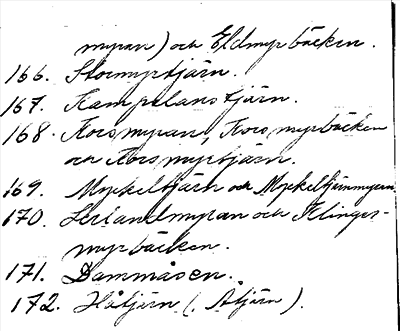 myran) och Eldmyrbäcken.
166. Stormyrtjärn.
167. Kampelanstjärn.
168. Korsmyran, Korsmyrbäcken
och Korsmyrtjärn.
169. Myckeltjärn och Myckeltjärnmyran
170. och Klingers-
myrbäcken.
171. Dammåsen.
172. Håtjärn (: Åtjärn).